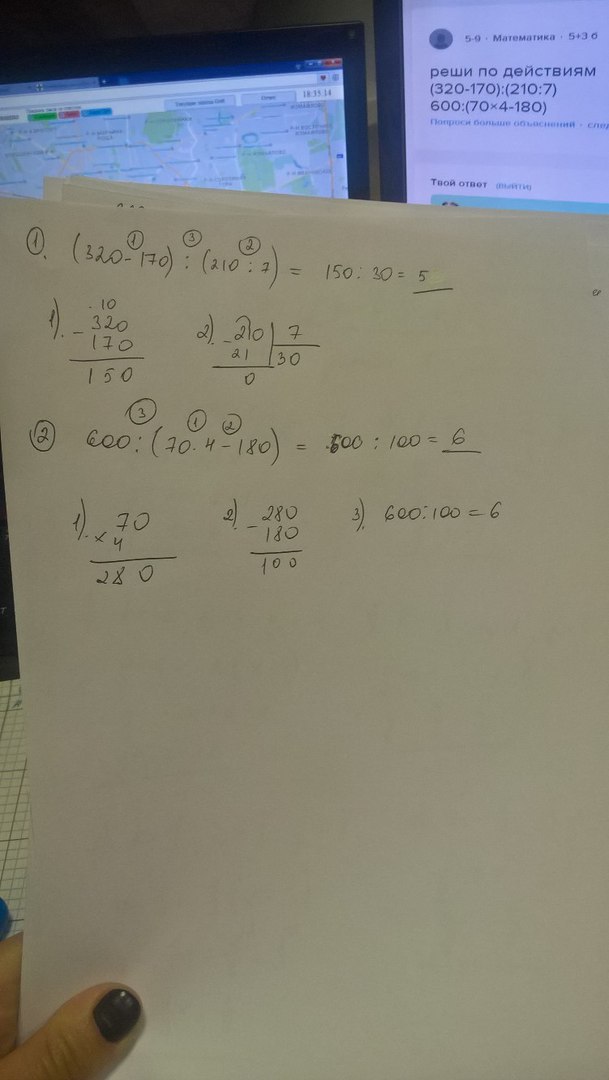 18:35:14
5-9 · Математика · 5+3 б
реши по действиям
(320-170):(210:7)
600:(70×4-180)
Попроси больше объяснений · след
Твой ответ (ВЫЙТИ)
① ③ ②
①. (320-170) : (210 : 7) = 150 : 30 = 5
1). 10
- 320
170
150
2). - 210 | 7
21 | 30
0
③ ① ②
② 600 : (70 · 4 - 180) = 600 : 100 = 6
1). 70
× 4
280
2) - 280
180
100
3) 600:100 = 6